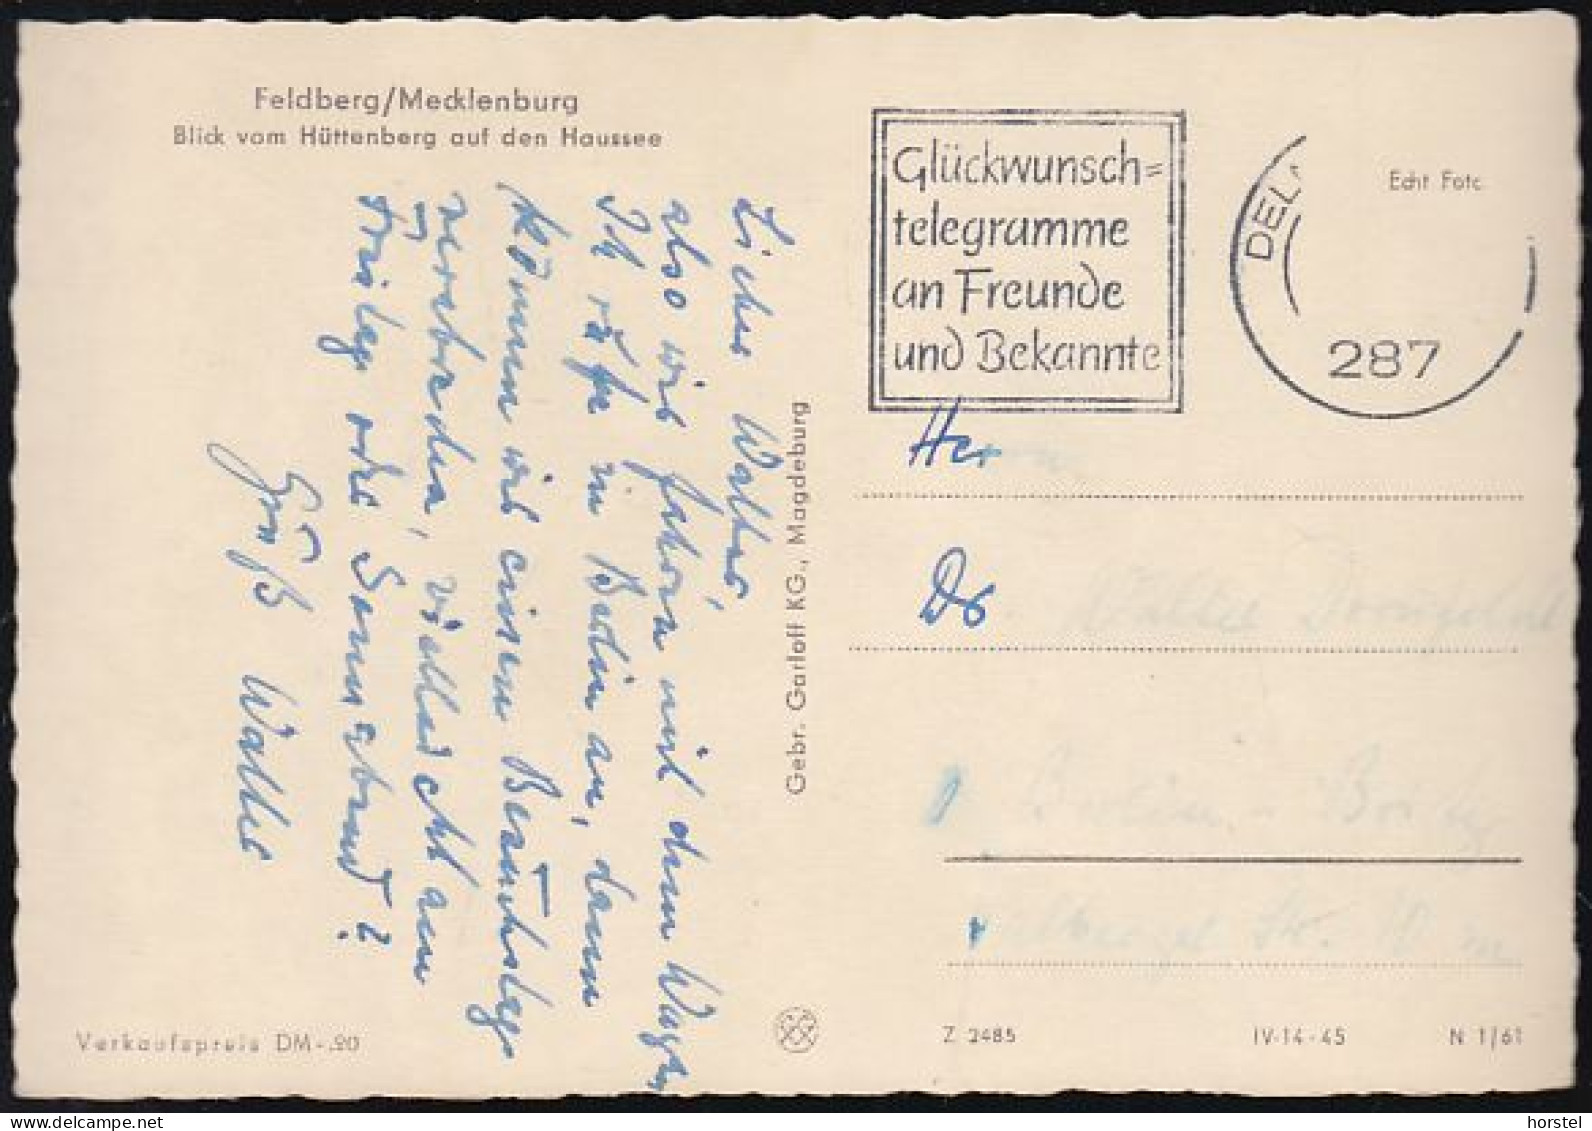 Feldberg/Mecklenburg
Blick vom Hüttenberg auf den Haussee
Lieber Walter,
also wir fahren mit dem Wagen
Ich rufe in Berlin an, dann
können wir einen Besuchstag
verabreden, vielleicht am
Freitag oder Sonnabend?
Gruß Walter
Verkaufspreis DM -.20
Gebr. Garloff KG., Magdeburg
Glückwunsch=
telegramme
an Freunde
und Bekannte
287
Echt Foto
Herrn
Dr
Z 2485
IV-14-45
N 1/61
horstel
www.delcampe.net